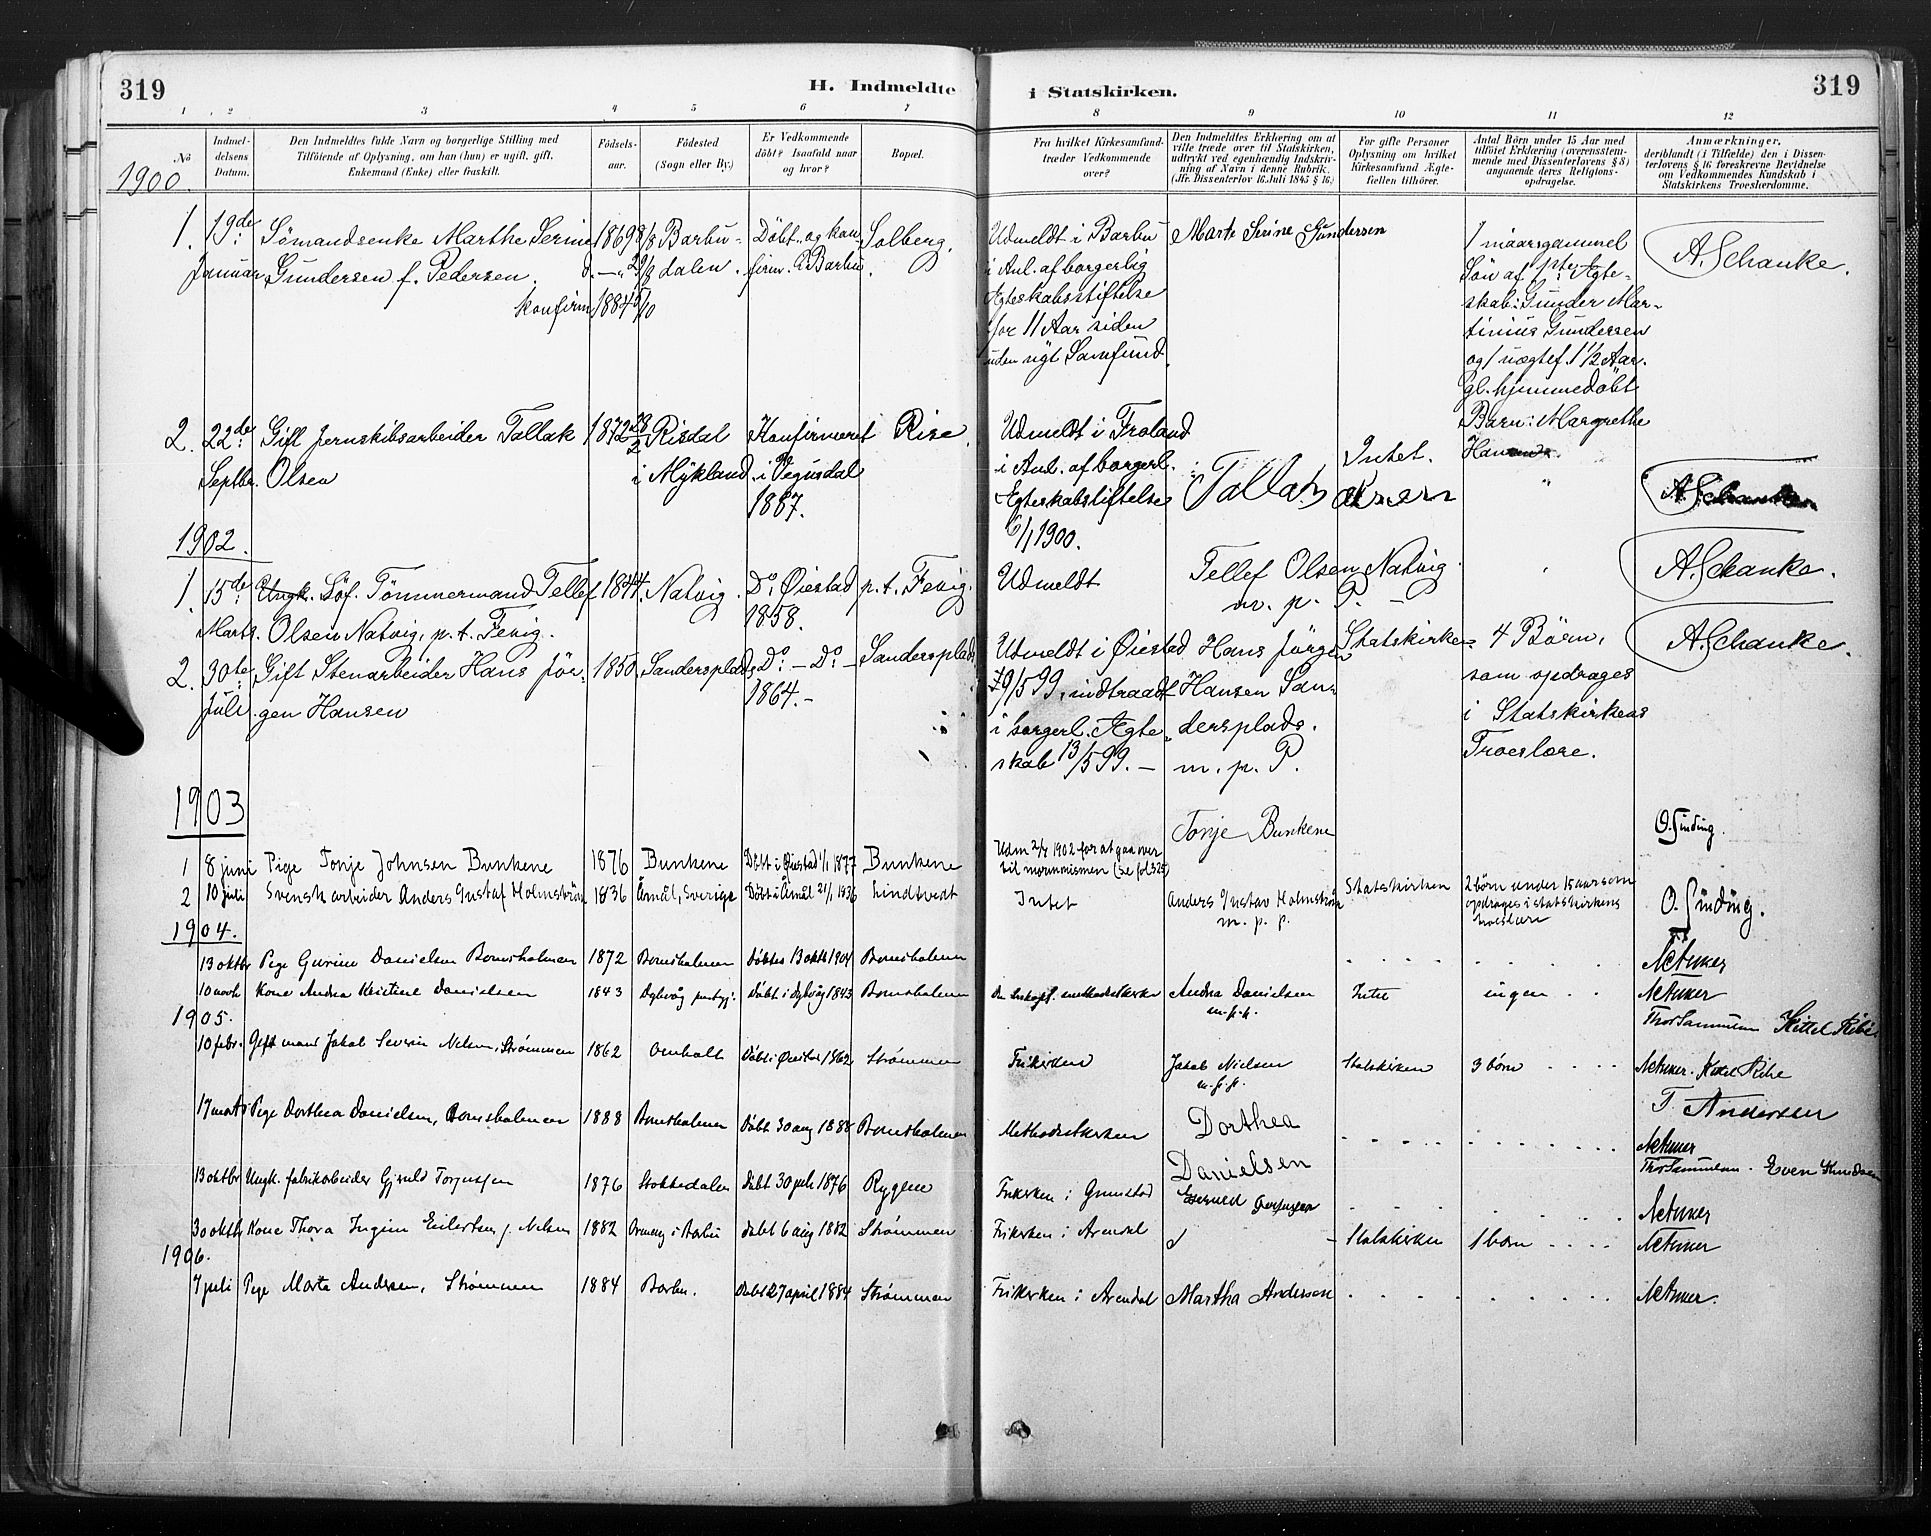 319
H. Indmeldte
i Statskirken.
319
1 2 3 4 5 6 7 8 9 10 11 12
No
Indmel-
delsens
Datum.
Den Indmeldtes fulde Navn og borgerlige Stilling med
Tilföiende af Oplysning, om han (hun) er ugift, gift,
Enkemand (Enke) eller fraskilt.
Födsels-
aar.
Födested
(Sogn eller By.)
Er Vedkommende
döbt? Isaafald naar
og hvor?
Bopæl.
Fra hvilket Kirkesamfund
træder Vedkommende
over?
Den Indmeldtes Erklæring om at
ville træde over til Statskirken,
udtrykt ved egenhændig Indskriv-
ning af Navn i denne Rubrik.
(Jfr. Dissenterlov 16 Juli 1845 § 16.)
For gifte Personer
Oplysning om hvilket
Kirkesamfund Ægte-
fællen tilhörer.
Antal Börn under 15 Aar med
tilföiet Erklæring (overensstem-
mende med Dissenterlovens § 8)
angaaende deres Religions-
opdragelse.
Anmærkninger,
deriblandt (i Tilfælde) den i Dissen-
terlovens § 16 foreskrevne Bevidnelse
om Vedkommendes Kundskab i
Statskirkens Troeslærdomme.
1900.
1. 19de Januar
Sömandsenke Marthe Serine
Gundersen f. Pedersen.
konfirm 1884 5/10
1869 8/8
Barbu-
dalen.
Döbt og kon-
firm. i Barbu.
Solberg.
Udmeldt i Barbu
i Anl. af borgerlig
Egteskabsstiftelse
for 11 Aar siden
uden nyt Samfund.
Marte Serine Gundersen
Sön af 1ste Ægte-
skab: Gunder Mar-
tinius Gundersen
og 1 uægtef. 1 1/2 Aar.
gl. hjemmedöbt
Barn: Margrethe
A. Schanke.
2. 22de Septbr.
Gift Jernskibsarbeider Tallak
Olsen
1872
Risdal
i Mykland.
Konfirmeret
i Vegusdal
1887.
Rise.
Udmeldt i Froland
i Anl. af borgerl.
Egteskabstiftelse
6/1 1900.
Tallak
Intet.
"
A. Schanke
1902.
1. 15de Marts.
Ungk. Söf. Tömmermand Tellef
Olsen Natvig, p.t. Fevig.
1844.
Natvig.
Do Öiestad
1858.
p.t. Fevig.
Udmeldt
Tellef Olsen Natvig.
m. p. P. -
A. Schanke.
2. 30te Juli
Gift Stenarbeider Hans Jör-
gen Hansen
1850.
Sandersplads
Do - Do -
1864.-
Sandersplads
Udmeldt i Öiestad
29/5 99, indtraadt
i borgerl. Ægte-
skab 13/5 99. -
Hans Jörgen
Hansen San-
dersplads.
m. p. P.
Statskirken
4 Börn,
som opdrages
i Statskirkens
Troeslære.
A. Schanke.
1903
1 8 juni
Pige Tonje Johnsen Bunkene
1876
Bunkene
Döbt i Öiestad 1/1 1877
Bunkene
Udm 2/4 1902 for at gaa over
til mormonismen (se fol 325)
Tonje Bunkene
O. Sinding.
2 10 juli
Svensk arbeider Anders Gustaf Holmström
1836
Åmål, Sverige
Döbt i Åmål 21/1 1836
Lindtvedt
Intet
Anders Gustav Holmström
m. p. p.
Statskirken
2 börn under 15 aar som
opdrages i statskirkens
troeslære
O. Sinding.
1904.
13 oktbr
Pige Gurine Danielsen Bomsholmen
1872
Bomsholmen
Döbtes 13 oktb 1904
Bomsholmen
10 novb
Kone Andrea Kristine Danielsen
1843
Dybvåg
Döbt i Dybvåg 1843
Bomsholmen
Andrea Danielsen
m. p. p.
Intet
ingen
1905.
10 febr.
Gift mand Jakob Severin Nielsen, Strømmen
1862
Omholt
Döbt i Öiestad 1862
Strømmen
Frikirken
Jakob Nielsen
m. p. p.
Statskirken
3 börn
17 marts
Pige Dorthea Danielsen, Bomsholmen
1888
Bomsholmen
Döbt 30 aug 1888
Bomsholmen
Methodistkirken
Dorthea
Danielsen
T. Andersen
13 oktbr
Ungk. fabrikarbeider Gjeruld Torjussen
1876
Stokkedalen
Döbt 30 juli 1876
Rygene
Frikirken i Grimstad
30 oktbr
Kone Thora Ingine Eilertsen f. Nielsen
1882
Döbt 6 aug 1882
Strømmen
Frikirken i Arendal
Statskirken
1 barn
1906.
7 juli
Pige Marta Andersen, Strømmen
1884
Barbu.
Döbt 27 april 1884
Strømmen
Frikirken i Arendal
Martha Andersen